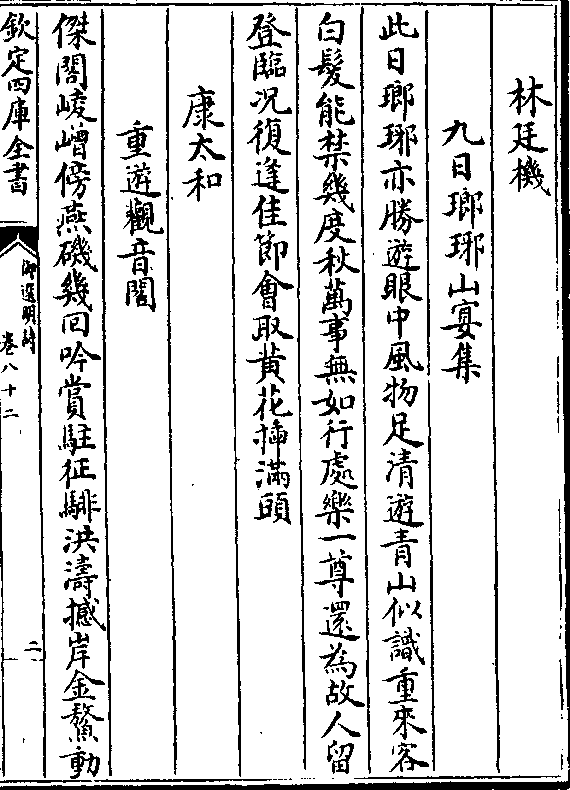 林廷機
九日瑯琊山宴集
此日瑯琊亦勝遊眼中風物足清遊青山似識重來客
白髮能禁幾度秋萬事無如行處樂一尊還為故人留
登臨况復逢佳節會取黄花揷滿頭
康太和
重遊觀音閣
傑閣崚嶒傍燕磯幾回吟賞駐征騑洪濤撼岸金鰲動
欽定四庫全書
御選明詩
卷八十二
二